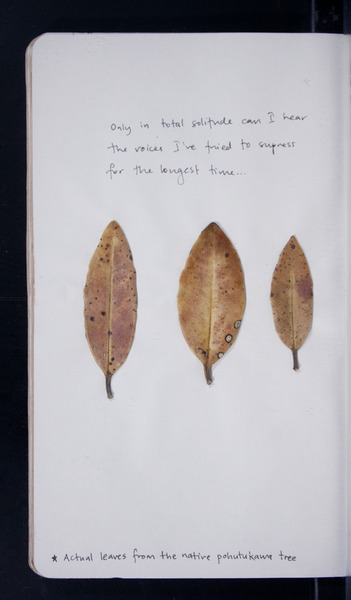 Only in total solitude can I hear
the voices I've tried to supress
for the longest time...
* Actual leaves from the native pohutukawa tree